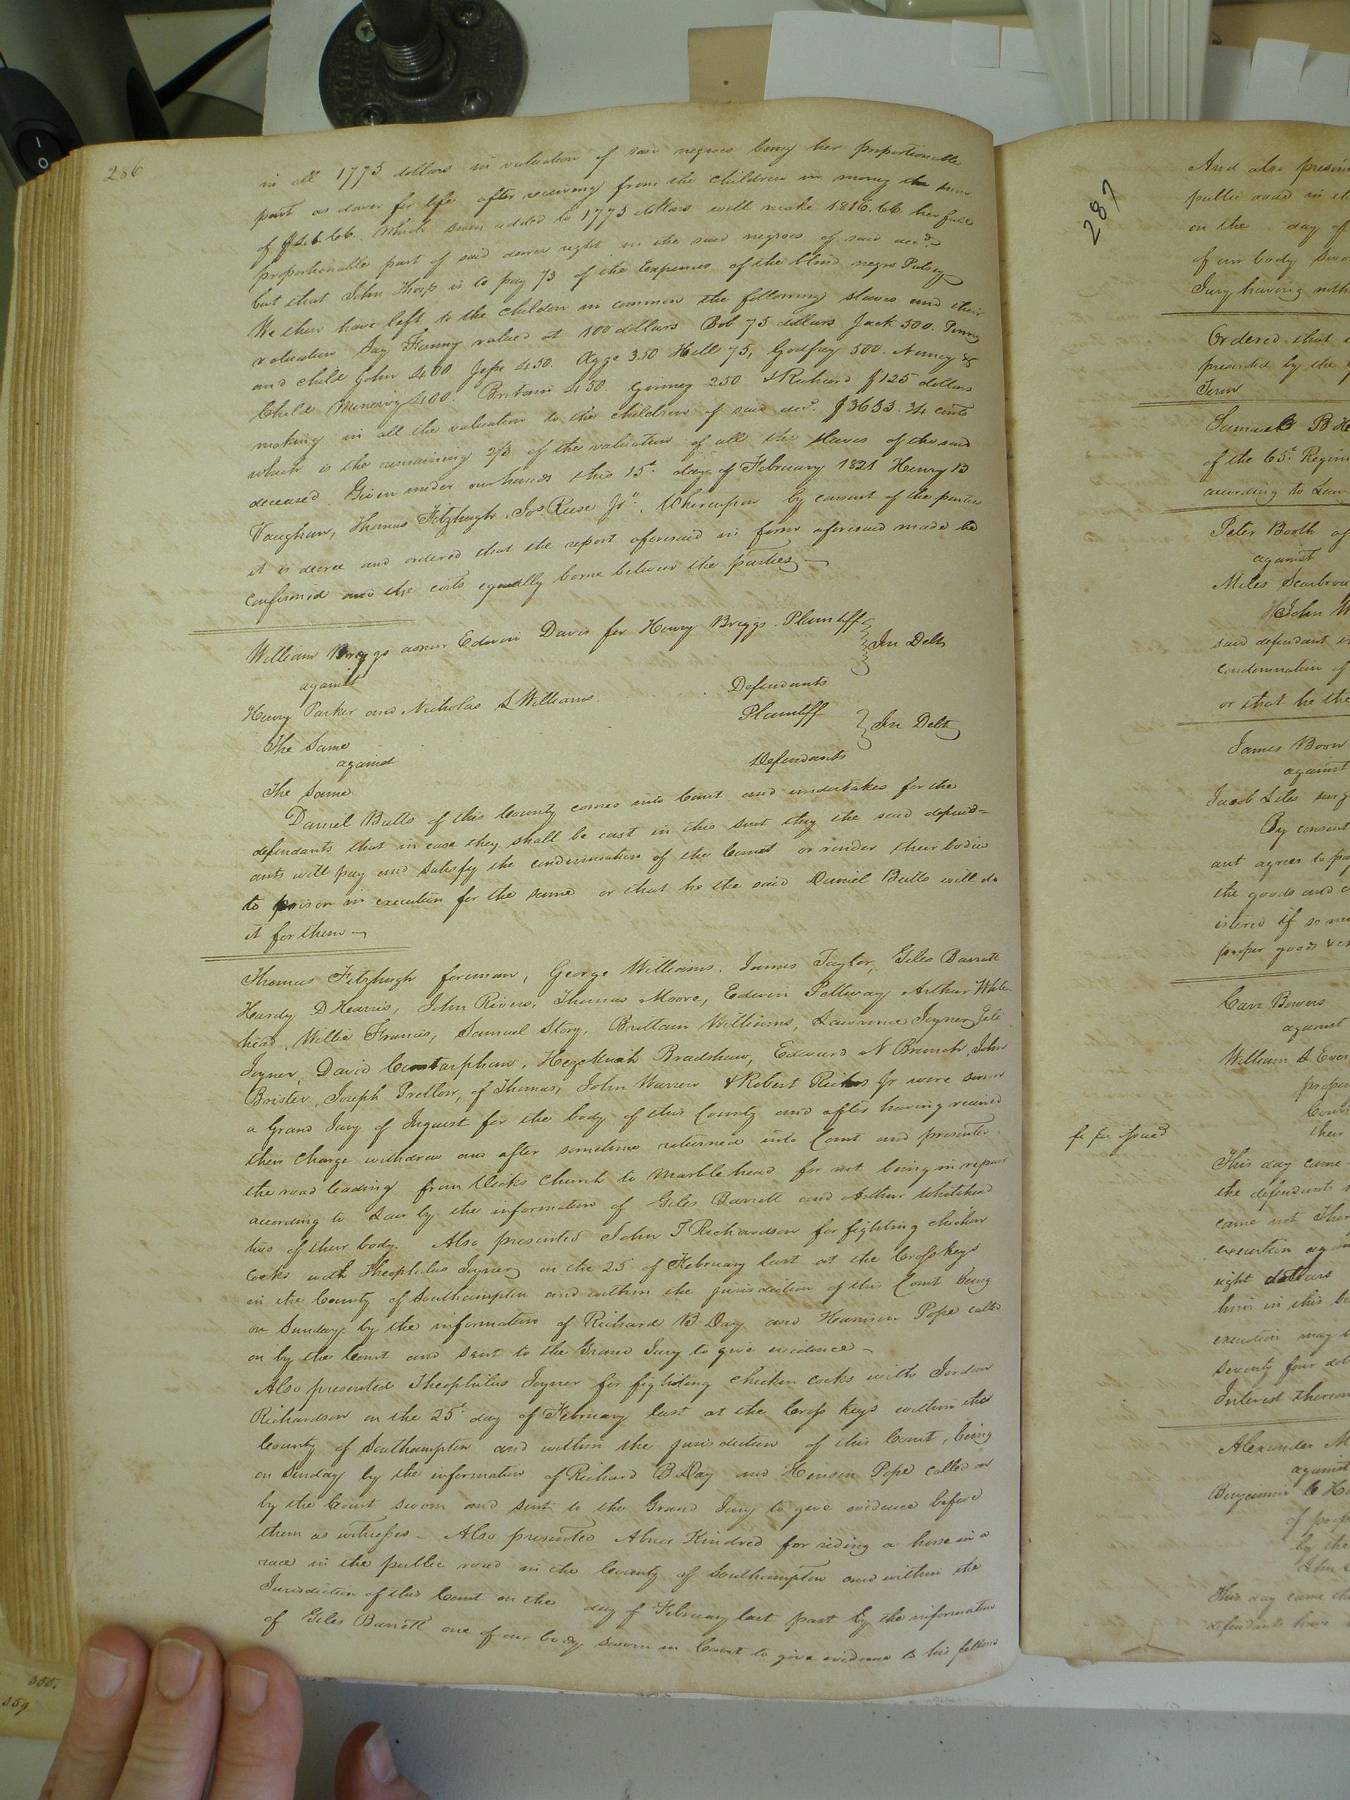 286
in all 1775 dollars in valuation of said negroes being her proportionable
part as dower for life after receiving from the children in money the sum
of $41.66 which sum added to 1775 dollars will make 1816.66 her full
proportionable part of said dower right in the said negroes of said decd.
but that John Thorp is to pay 1/3 of the expenses of the blind negro Patsey
We then have left to the children in common the following slaves and their
valuation Say Fanny valued at 100 dollars Bob 75 dollars Jack 500. Penny
and child John 400 Jesse 450. Agge 350 Hill 75, Godfrey 500. Nancy &
Child Minervy 400. Britain 450 Ginney 250 & Richard $125 dollars
making in all the valuation to the children of said decd. $3633. 34 cents
which is the remaining 2/3 of the valuation of all the slaves of the said
deceased. Given under our hands this 15th day of February 1821 Henry B
Vaughan, Thomas Fitzhugh Jos Reese Jr. Whereupon by consent of the parties
it is decree and ordered that the report aforesaid in form aforesaid made be
confirmed and the costs equally borne between the parties
William Briggs assnee Edwin Davis for Henry Briggs Plaintiff
against
In Debt
Henry Parker and Nicholas L Williams. Defendants
The Same Plaintiff
against
In Debt
The Same Defendants
Daniel Butts of this County comes into Court and undertakes for the
defendants that in case they shall be cast in this suit they the said defend-
ants will pay and satisfy the condemnation of the Court or render their bodies
to prison in execution for the same or that he the said Daniel Butts will do
it for them
Thomas Fitzhugh foreman, George Williams. James Taylor, Giles Barrett
Hardy D Harris, John Rivers, Thomas Moore, Edwin Pettway Arthur White
head, Willie Francis, Samuel Story, Brittain Williams, Lawrence Joyner,
Joyner, David Bradshaw, Edward N Branch, John
Brister, Joseph Pretlow, of Thomas, John Warren & Robert Ricks Jr were sworn
a Grand Jury of Inquest for the body of this County and after having received
their charge withdrew and after sometime returned into Court and presented
the road leading from Church to Marblehead for not being in repair
according to Law by the information of Giles Barrett and Arthur Whitehead
two of their body. Also presented John T Richardson for fighting chicken
cocks with Theophilus Joyner on the 25 of February last at the Cross keys
in the County of Southampton and within the jurisdiction of this Court being
on Sunday by the information of Richard B Day and Harrison Pope called
on by the Court and sent to the Grand Jury to give evidence
Also presented Theophilus Joyner for fighting chicken cocks with Jordan
Richardson on the 25th day of February last at the Cross keys within the
County of Southampton and within the jurisdiction of this Court, being
on Sunday by the information of Richard B Day and Pope called on
by the Court sworn and sent to the Grand Jury to give evidence before
them as witnesses Also presented Abner Kindred for riding a horse in a
race in the public road in the County of Southampton and within the
Jurisdiction of this Court on the day of February last past by the information
of Giles Barrett one of our body sworn in Court to give evidence to his fellows
355.
359
287
And also presen
public road in
on the day of
of our body swo
Jury having
Ordered that
presented by the
Term
Samuel B
of the 65th Regim
according to Law
Peter Booth
against
Miles Scarbro
John
said defendant
condemnation of
or that he the
James Boon
against
Jacob Liles
By consent
ant agrees to pa
the goods and
istered if so
proper goods &
Carr Bowers
against
William L
proper
their
fi fa issued
This day came
the defendants
came not Ther
execution
eight dollars
him in this
execution may
seventy four dol
Interest thereon
Alexander M
against
Benjamin C
of
by the
John
This day came the
defendants have